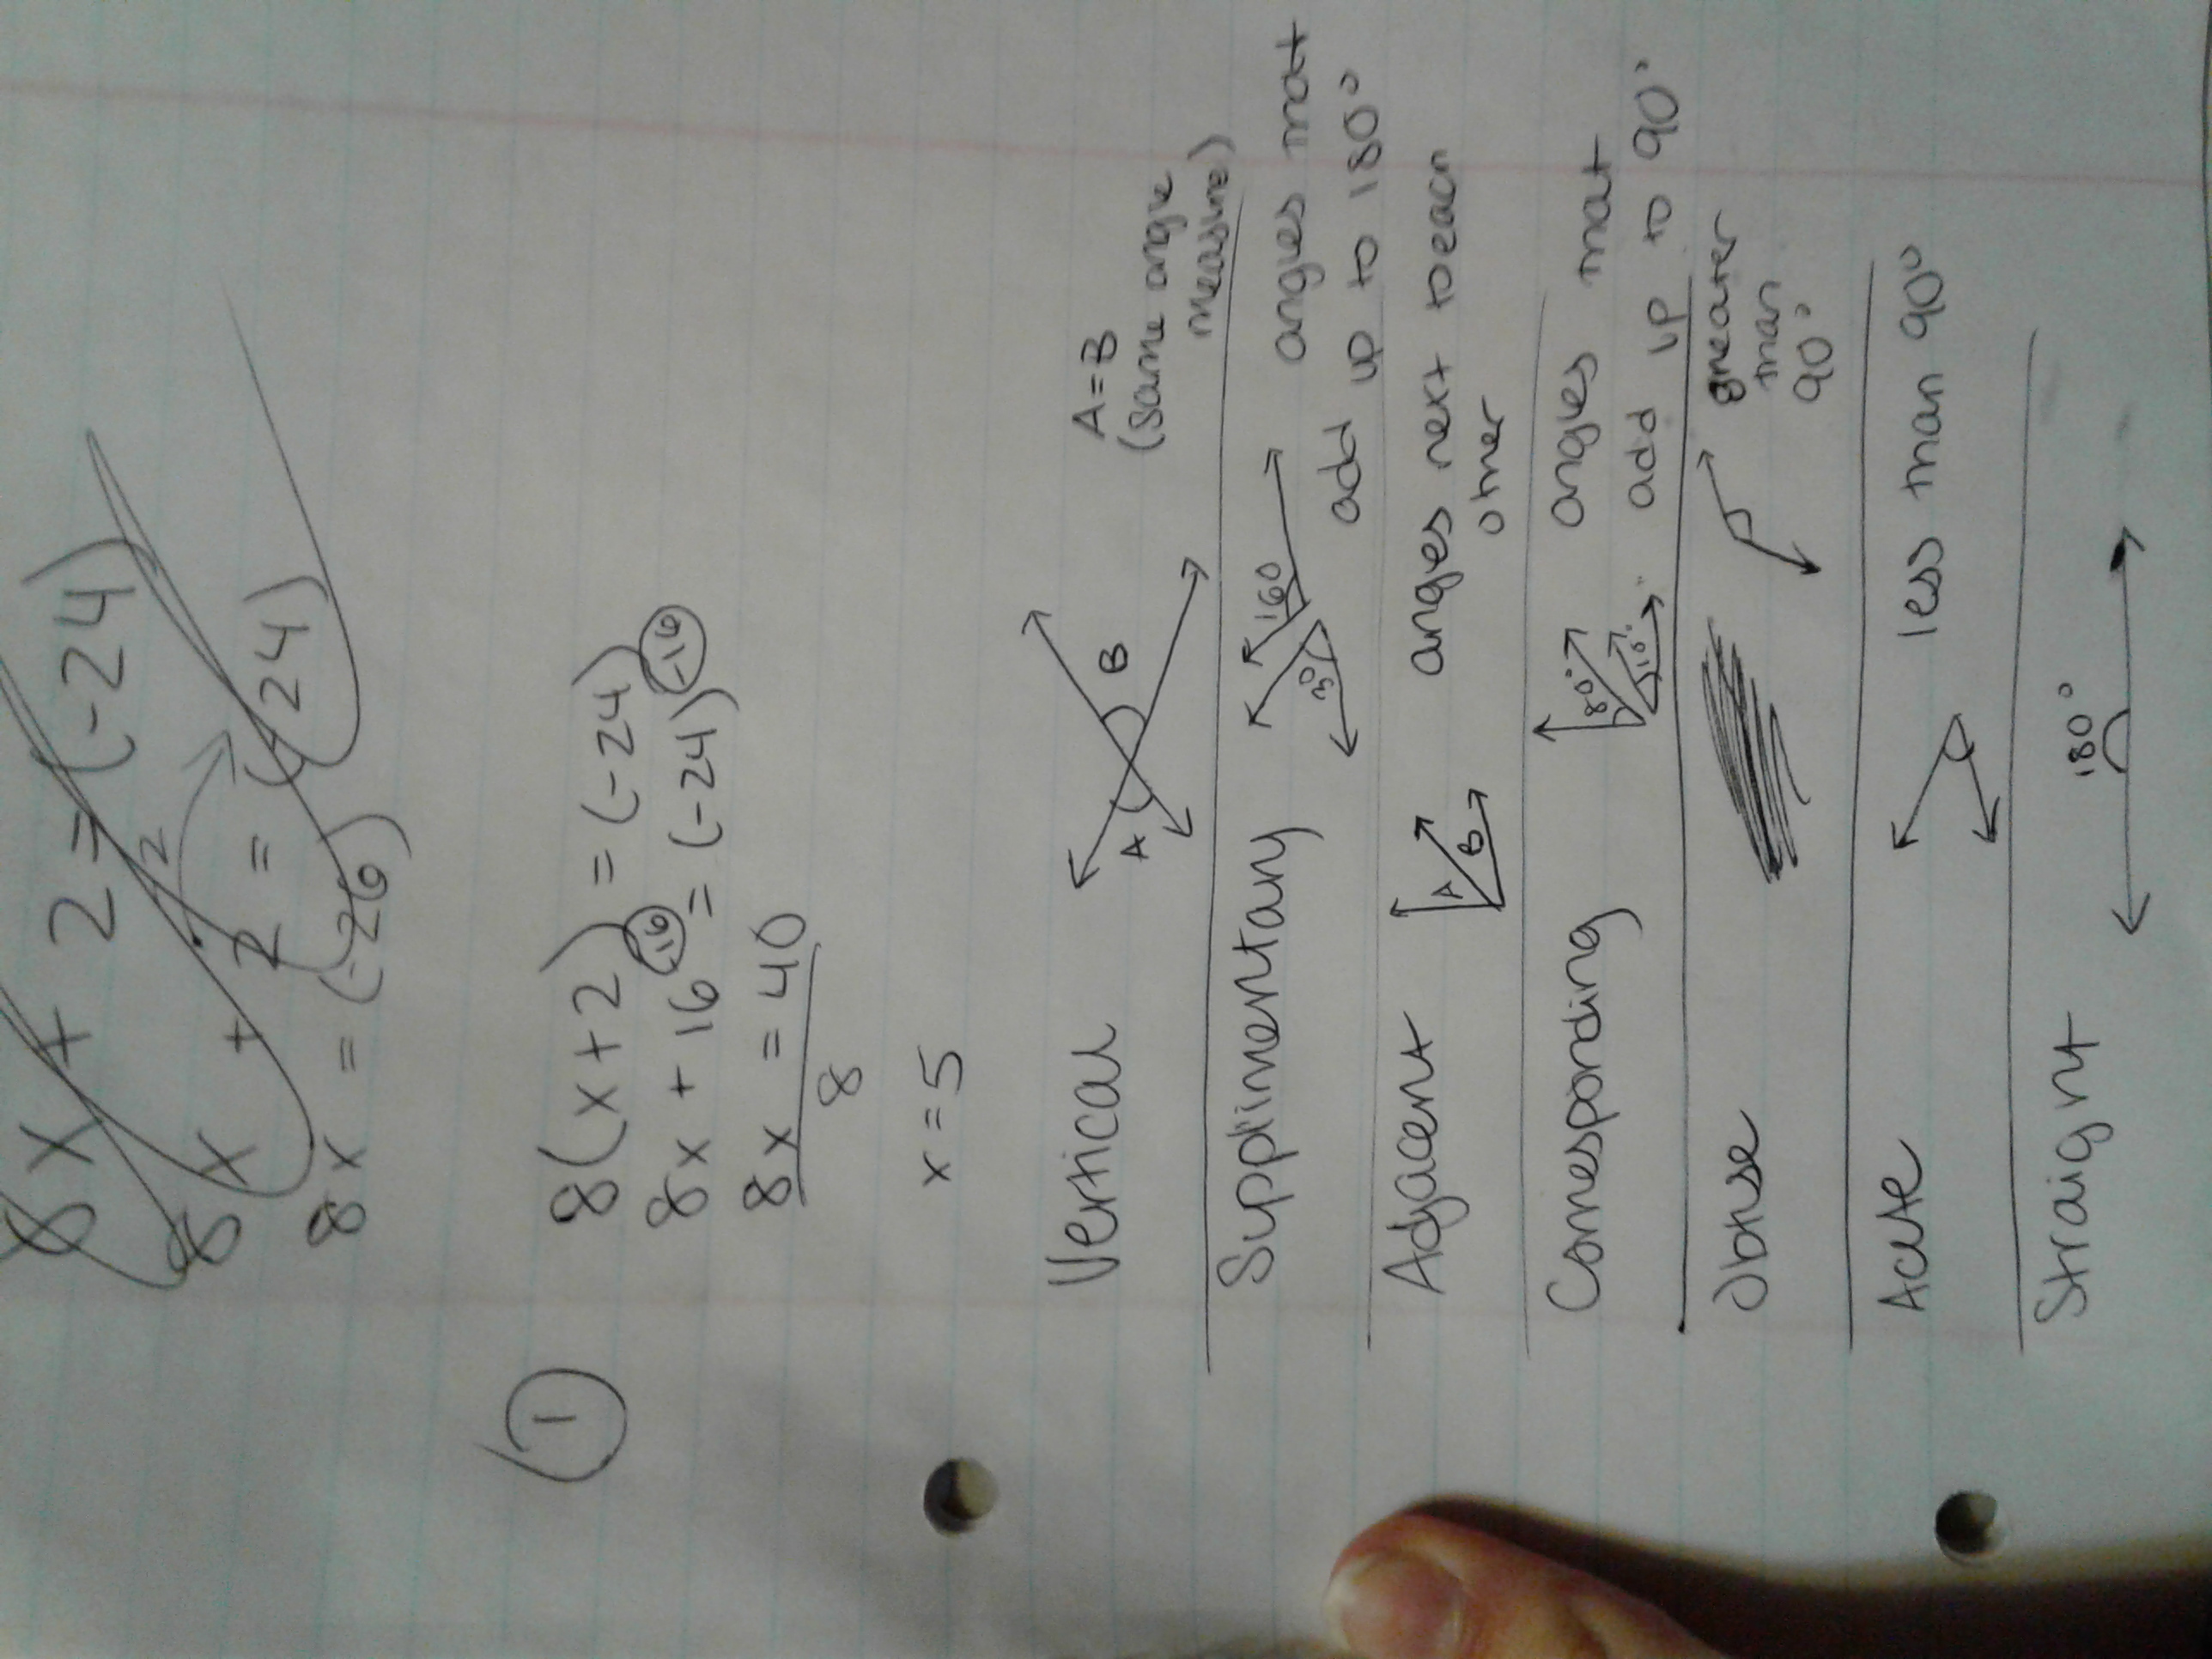 8x + 2 = (-24)
8x + 2 = (24)
2
8x = (-26)
1
8(x+2) = (-24)
8x + 16 -16 = (-24) -16
8x = 40
8
x = 5
Vertical A B A=B
(same angle
measure)
Supplimentary 30 160 angles that
add up to 180°
Adjacent A B angles next to each
other
Corresponding 80° 10° angles that
add up to 90°
Obtuse greater
than
90°
Acute less than 90°
Straight 180°